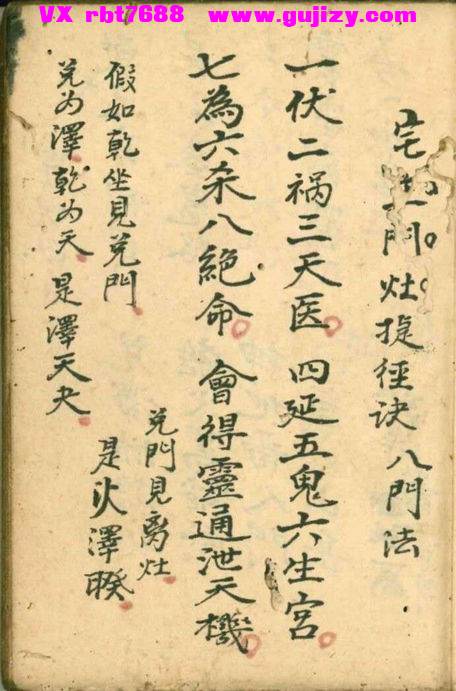 VX rbt7688 www.gujizy.com
宅門灶捷徑诀 八門法
一伏二祸三天医 四延五鬼六生宫
七為六杀八絕命 會得靈通泄天機
假如乾坐見兑門
兑为澤乾为天 是澤天夬
兑門見离灶
是火澤睽